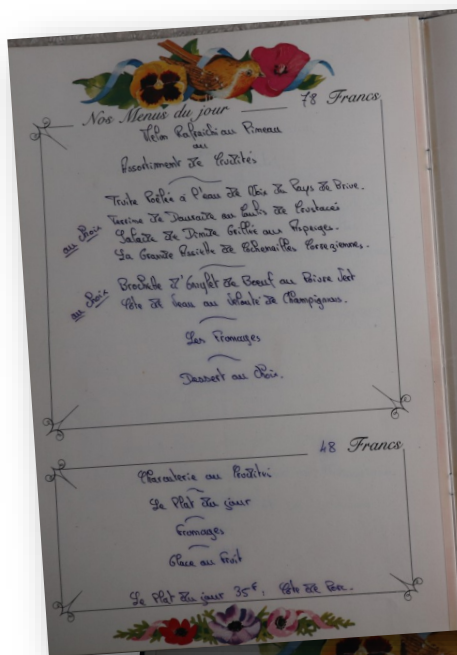 Nos Menus du jour 78 Francs
Melon Rafraîchi au Pineau
ou
Assortiment de Crudités
Truite Poêlée à l'eau de Noix du Pays de Brive.
Terrine de Daurade au Coulis de Crustacés
au choix
Salade de Dinde Grillée aux Asperges.
La Grande Assiette de Cochonailles Corréziennes.
Brochette d'Onglet de Boeuf au Poivre Vert
au choix
Côte de Veau au Velouté de Champignons.
Les Fromages
Dessert au Choix.
48 Francs
Charcuterie ou Crudités
Le Plat du jour
Fromages
Glace ou Fruit
Le Plat du jour 35F, Côte de Porc.